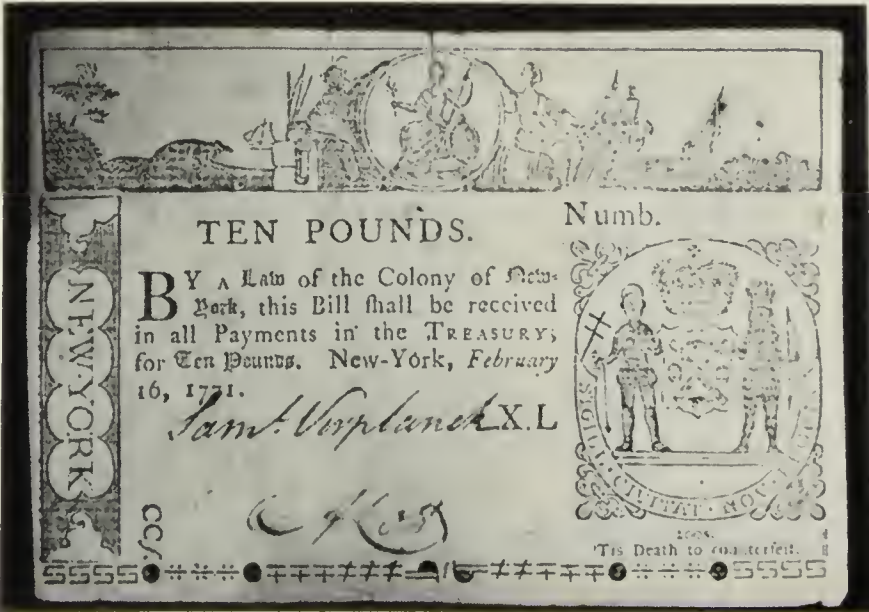 TEN POUNDS.
Numb.
BY A Law of the Colony of New-
York, this Bill ſhall be received
in all Payments in the TREASURY,
for Ten Pounds. New-York, February
16, 1771.
Samˡ. Verplanck X.L
NEW-YORK
SIGILL CIVITAT NOV
'Tis Death to counterfeit.